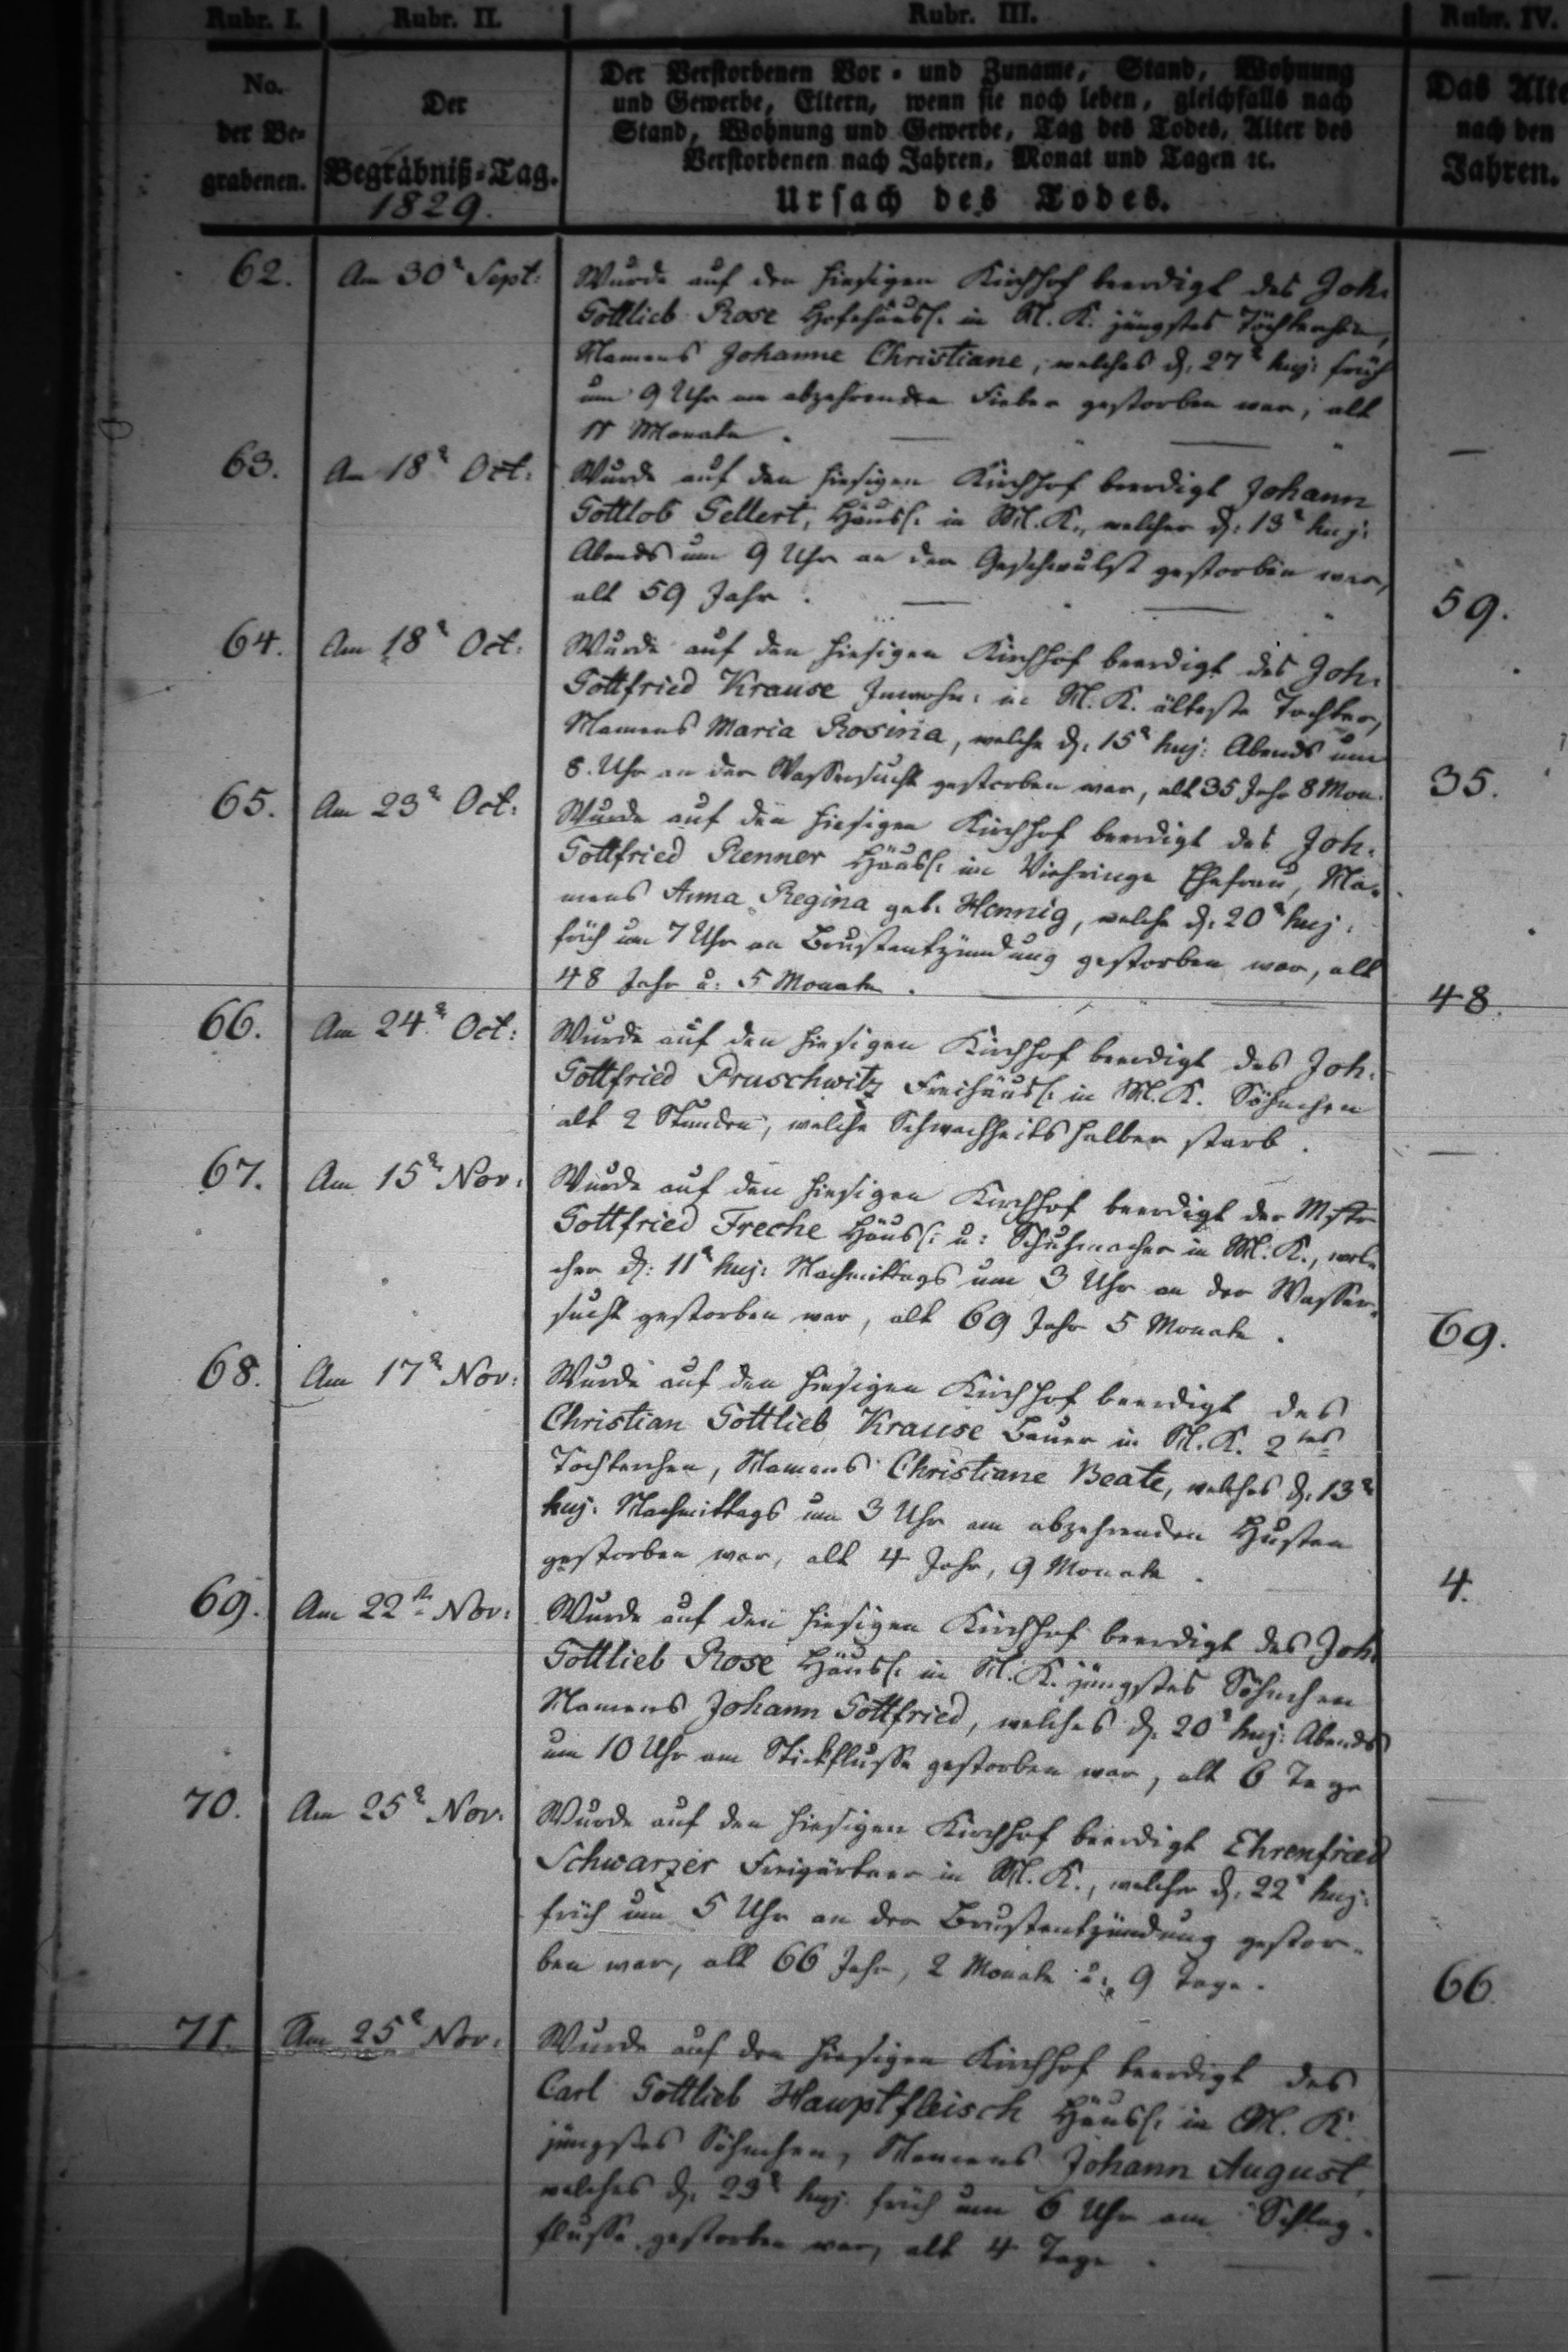 Rubr. I. Rubr. II. Rubr. III. Rubr. IV.
No.
der Be-
grabenen.
Der
Begräbniß-Tag.
1829.
Der Verstorbenen Vor- und Zuname, Stand, Wohnung
und Gewerbe, Eltern, wenn sie noch leben, gleichfalls nach
Stand, Wohnung und Gewerbe, Tag des Todes, Alter des
Verstorbenen nach Jahren, Monat und Tagen ꝛc.
Ursach des Todes.
Das Alte
nach den
Jahren.
62. Am 30n Sept: Wurde auf den hiesigen Kirchhof beerdigt des Joh.
Gottlieb Rose Hofehäusl. in M. K. jüngstes Töchterchen,
Namens Johanne Christiane, welches d. 27n huj: früh
um 9 Uhr am abzehrenden Fieber gestorben war, alt
11 Monate. —
63. Am 18n Oct: Wurde auf den hiesigen Kirchhof beerdigt Johann
Gottlob Gellert, Häusl. in M. K., welcher d: 13n huj:
Abends um 9 Uhr an der Geschwulst gestorben war,
alt 59 Jahr. 59.
64. Am 18n Oct: Wurde auf den hiesigen Kirchhof beerdigt des Joh:
Gottfried Krause Inwohn: in M. K. älteste Tochter,
Namens Maria Rosina, welche d: 15n huj: Abends um
8 Uhr an der Wassersucht gestorben war, alt 35 Jahr 8 Mon. 35.
65. Am 23n Oct: Wurde auf den hiesigen Kirchhof beerdigt des Joh.
Gottfried Renner Häusl. im Viehringe Ehefrau, Na-
mens Anna Regina geb. Hennig, welche d: 20n huj:
früh um 7 Uhr an Brustentzündung gestorben war, alt
48 Jahr u: 5 Monate. 48.
66. Am 24n Oct: Wurde auf den hiesigen Kirchhof beerdigt des Joh.
Gottfried Pruschwitz Freihäusl. in M. K. Söhnchen
alt 2 Stunden, welche Schwachheits halber starb. —
67. Am 15n Nov: Wurde auf den hiesigen Kirchhof beerdigt der Mstr
Gottfried Freche Häusl: u: Schuhmacher in M. K., wel-
cher d: 11n huj: Nachmittags um 3 Uhr an der Wasser-
sucht gestorben war, alt 69 Jahr 5 Monate. 69.
68. Am 17n Nov: Wurde auf den hiesigen Kirchhof beerdigt des
Christian Gottlieb Krause Bauer in M. K. 2tes
Töchterchen, Namens Christiane Beate, welches d. 13n
huj: Nachmittags um 3 Uhr am abzehrenden Husten
gestorben war, alt 4 Jahr, 9 Monate. 4.
69. Am 22n Nov: Wurde auf den hiesigen Kirchhof beerdigt des Joh.
Gottlieb Rose Häusl. in M. K. jüngstes Söhnchen
Namens Johann Gottfried, welches d. 20n huj: Abends
um 10 Uhr am Stickflusse gestorben war, alt 6 Tage —
70. Am 25n Nov: Wurde auf den hiesigen Kirchhof beerdigt Ehrenfried
Schwarzer Freigärtner in M. K., welcher d. 22n huj:
früh um 5 Uhr an der Brustentzündung gestor-
ben war, alt 66 Jahr, 2 Monate u: 9 Tage. 66.
71. Am 25n Nov: Wurde auf den hiesigen Kirchhof beerdigt des
Carl Gottlieb Hauptfleisch Häusl. in M. K.
jüngstes Söhnchen, Namens Johann August,
welches d. 23n huj. früh um 6 Uhr am Schlag-
flusse gestorben war, alt 4 Tage. —